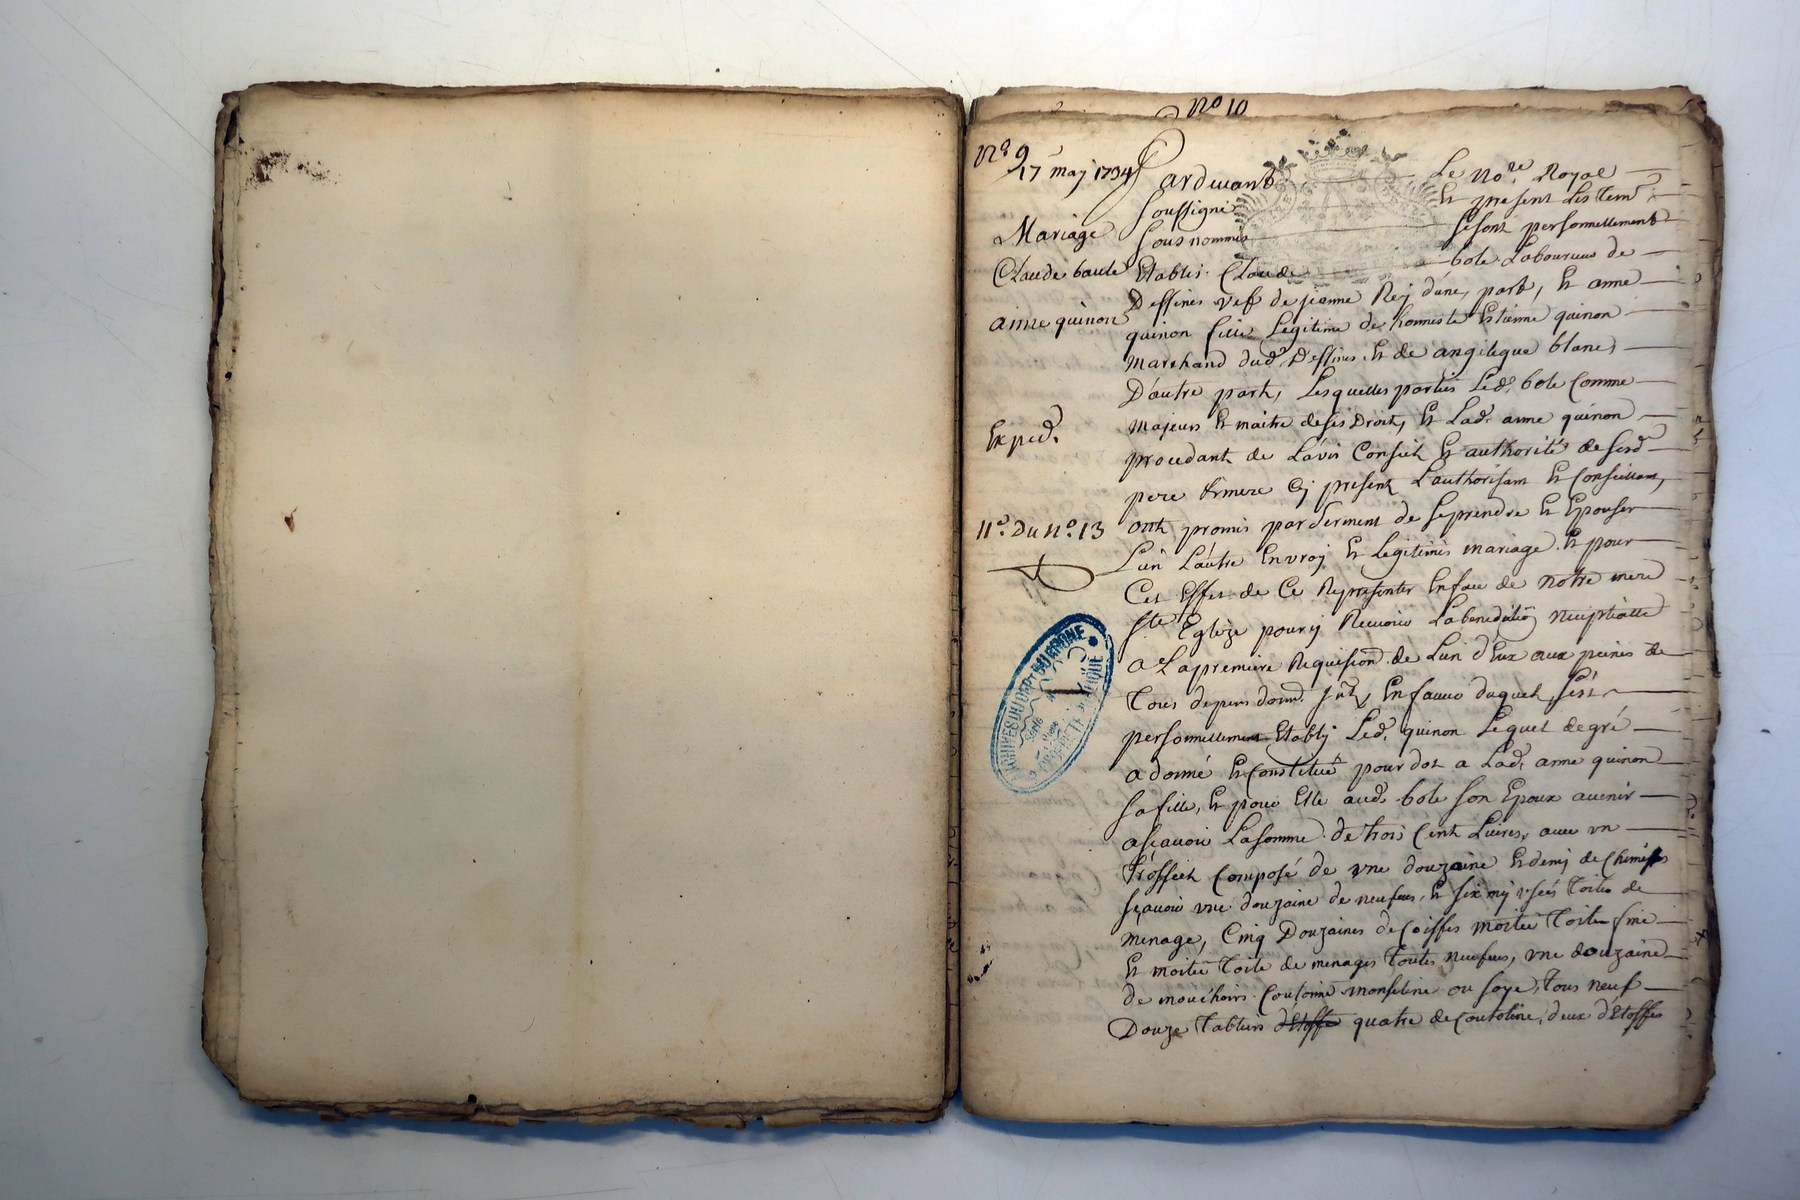 No 10
No 9
17 may 1734
Mariage
Claude baule
anne quinon
Exped.
11e. Du No. 13
Pardevant Le Nore. Royal
Soussigné Et present Les tem
Sousnommes se sont personnellement
Etablis Claude bole Laboureur de
Dessines vef de jeanne Rey d'une part, Et anne
quinon fille Legitime de honneste Estienne quinon
Marchand dud. Dessines Et de angelique blanc,
D'autre part, Lesquelles parties Led. bole Comme
Majeur Et maitre de ses Droit, Et Lad. anne quinon
procedant de L'avis Conseil Et authorité de sesd
pere Et mere Cy present L'authorisant Et Conseillant,
ont promis par serment de se prendre Et Epouser
L'un L'autre En vray Et Legitime mariage Et pour
Cet Effet de Ce Representer En face de notre mere
Ste Eglize pour y Recevoir La benediction neuptialle
a La premiere Requision de L'un d'Eux aux peines de
Tous depens domd. Int, En faveur duquel s'est
personnellement Etably Led. quinon Lequel de gré
a donné Et Constitué pour dot a Lad. anne quinon
sa fille, Et pour Elle aud. bole son Epoux avenir
ascavoir La somme de trois Cent Livres, avec un
Trossel Composé de une douzaine Et demy de Chemises
sçavoir une douzaine de neufves, Et six my usées Toile de
Menage, Cinq Douzaines de Coiffes moitié Toile fine
Et moitié Toile de menages Toutes neufves, une douzaine
de mouchoirs Coutonne monseline ou soye, Tous neuf
Douze Tabliers d'Etoffe quatre de Coutoline, deux d'Etoffes
ARCHIVES DU DÉPt DU RHONE